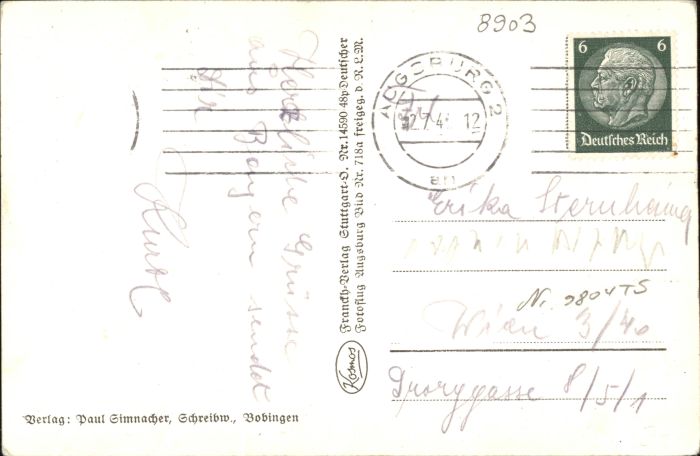 8903
Herzliche Grüsse
aus Bayern sendet
Dir
Kurtl
Franckh-Verlag Stuttgart-O. Nr. 14590 48p Deutscher
Fotoflug Augsburg Bild Nr. 718a freigeg. d. R.L.M.
Kosmos
Verlag: Paul Simnacher, Schreibw., Bobingen
AUGSBURG 2
12
an
6 6
Deutsches Reich
Erika
Nr. 9804TS
Wien 3/40
8/5/1